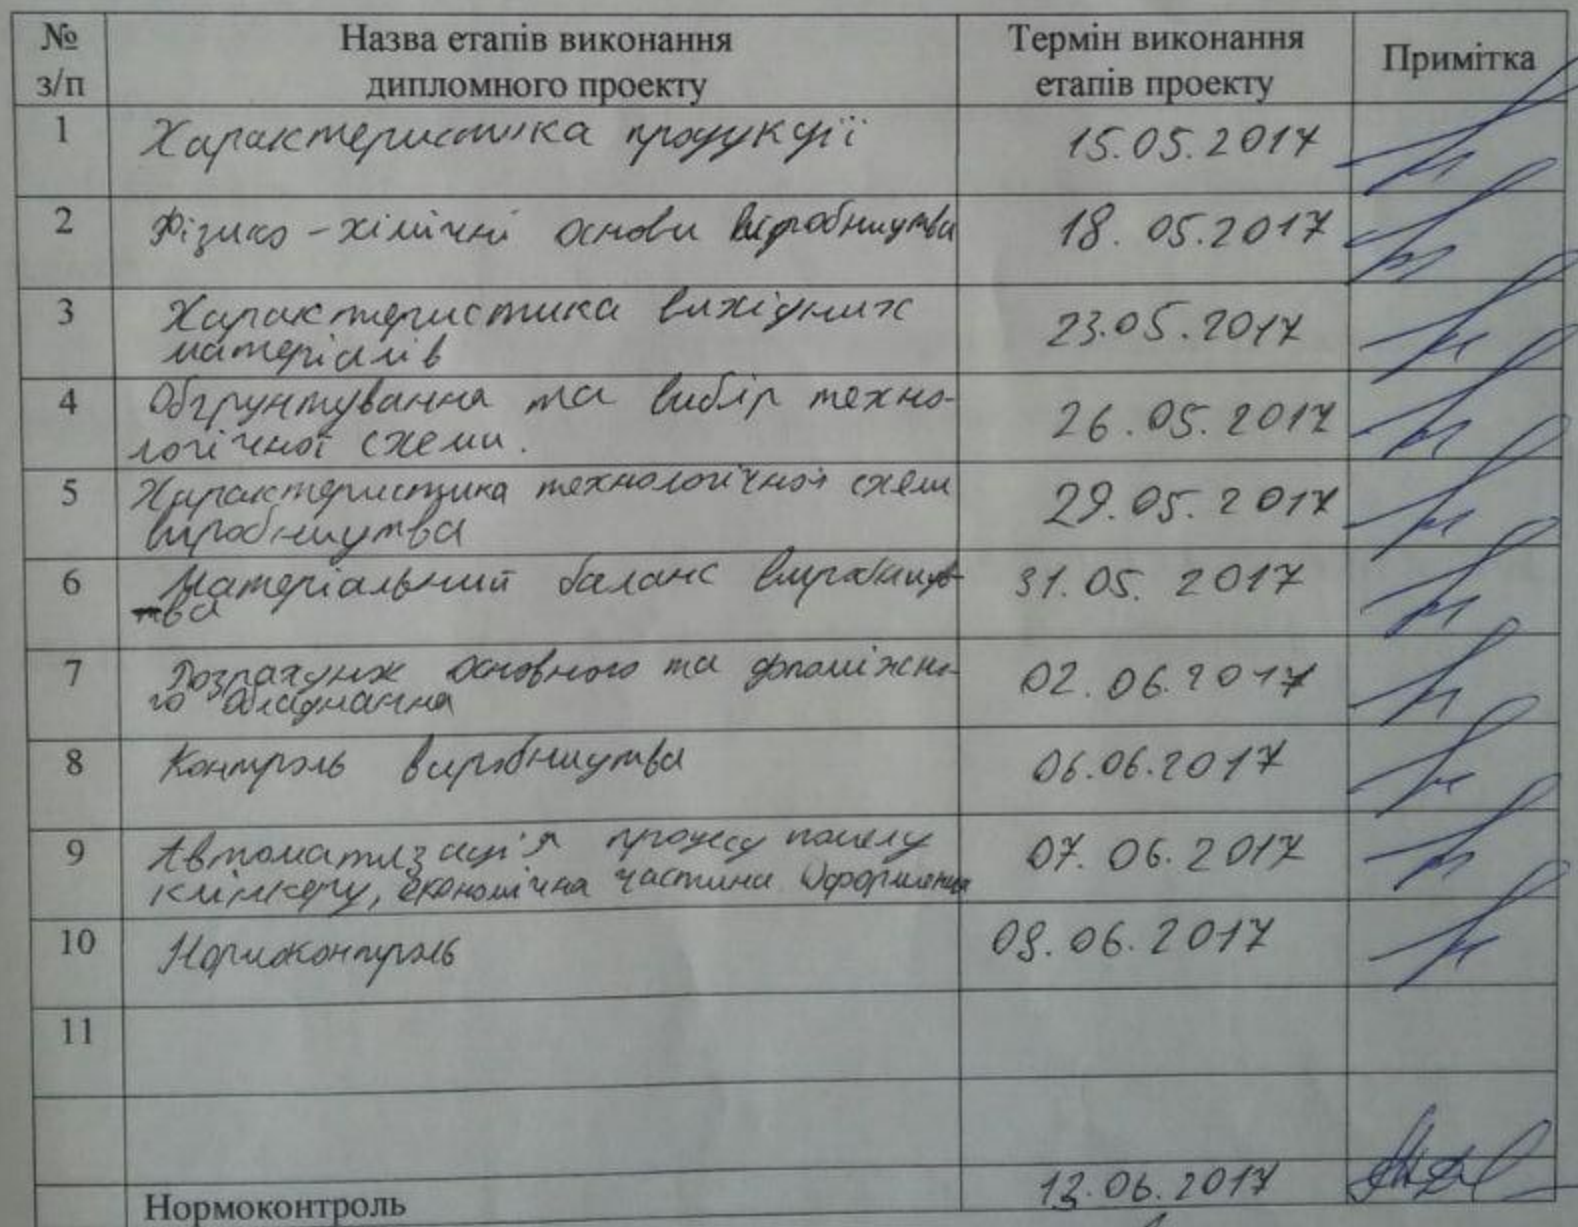 № з/п Назва етапів виконання дипломного проекту Термін виконання етапів проекту Примітка
1 Характеристика продукції 15.05.2017
2 Фізико-хімічні основи виробництва 18.05.2017
3 Характеристика вихідних 23.05.2017
матеріалів
4 Обгрунтування та вибір техно- 26.05.2017
логічної схеми.
5 Характеристика технологічної схеми 29.05.2017
виробництва
6 Матеріальний баланс виробницт- 31.05.2017
тва
7 Розрахунок основного та допоміжно- 02.06.2017
го обладнання
8 Контроль виробництва 06.06.2017
9 Автоматизація процесу помелу 07.06.2017
клінкеру, економічна частина Оформлення
10 Нормоконтроль 09.06.2017
11
Нормоконтроль 12.06.2017